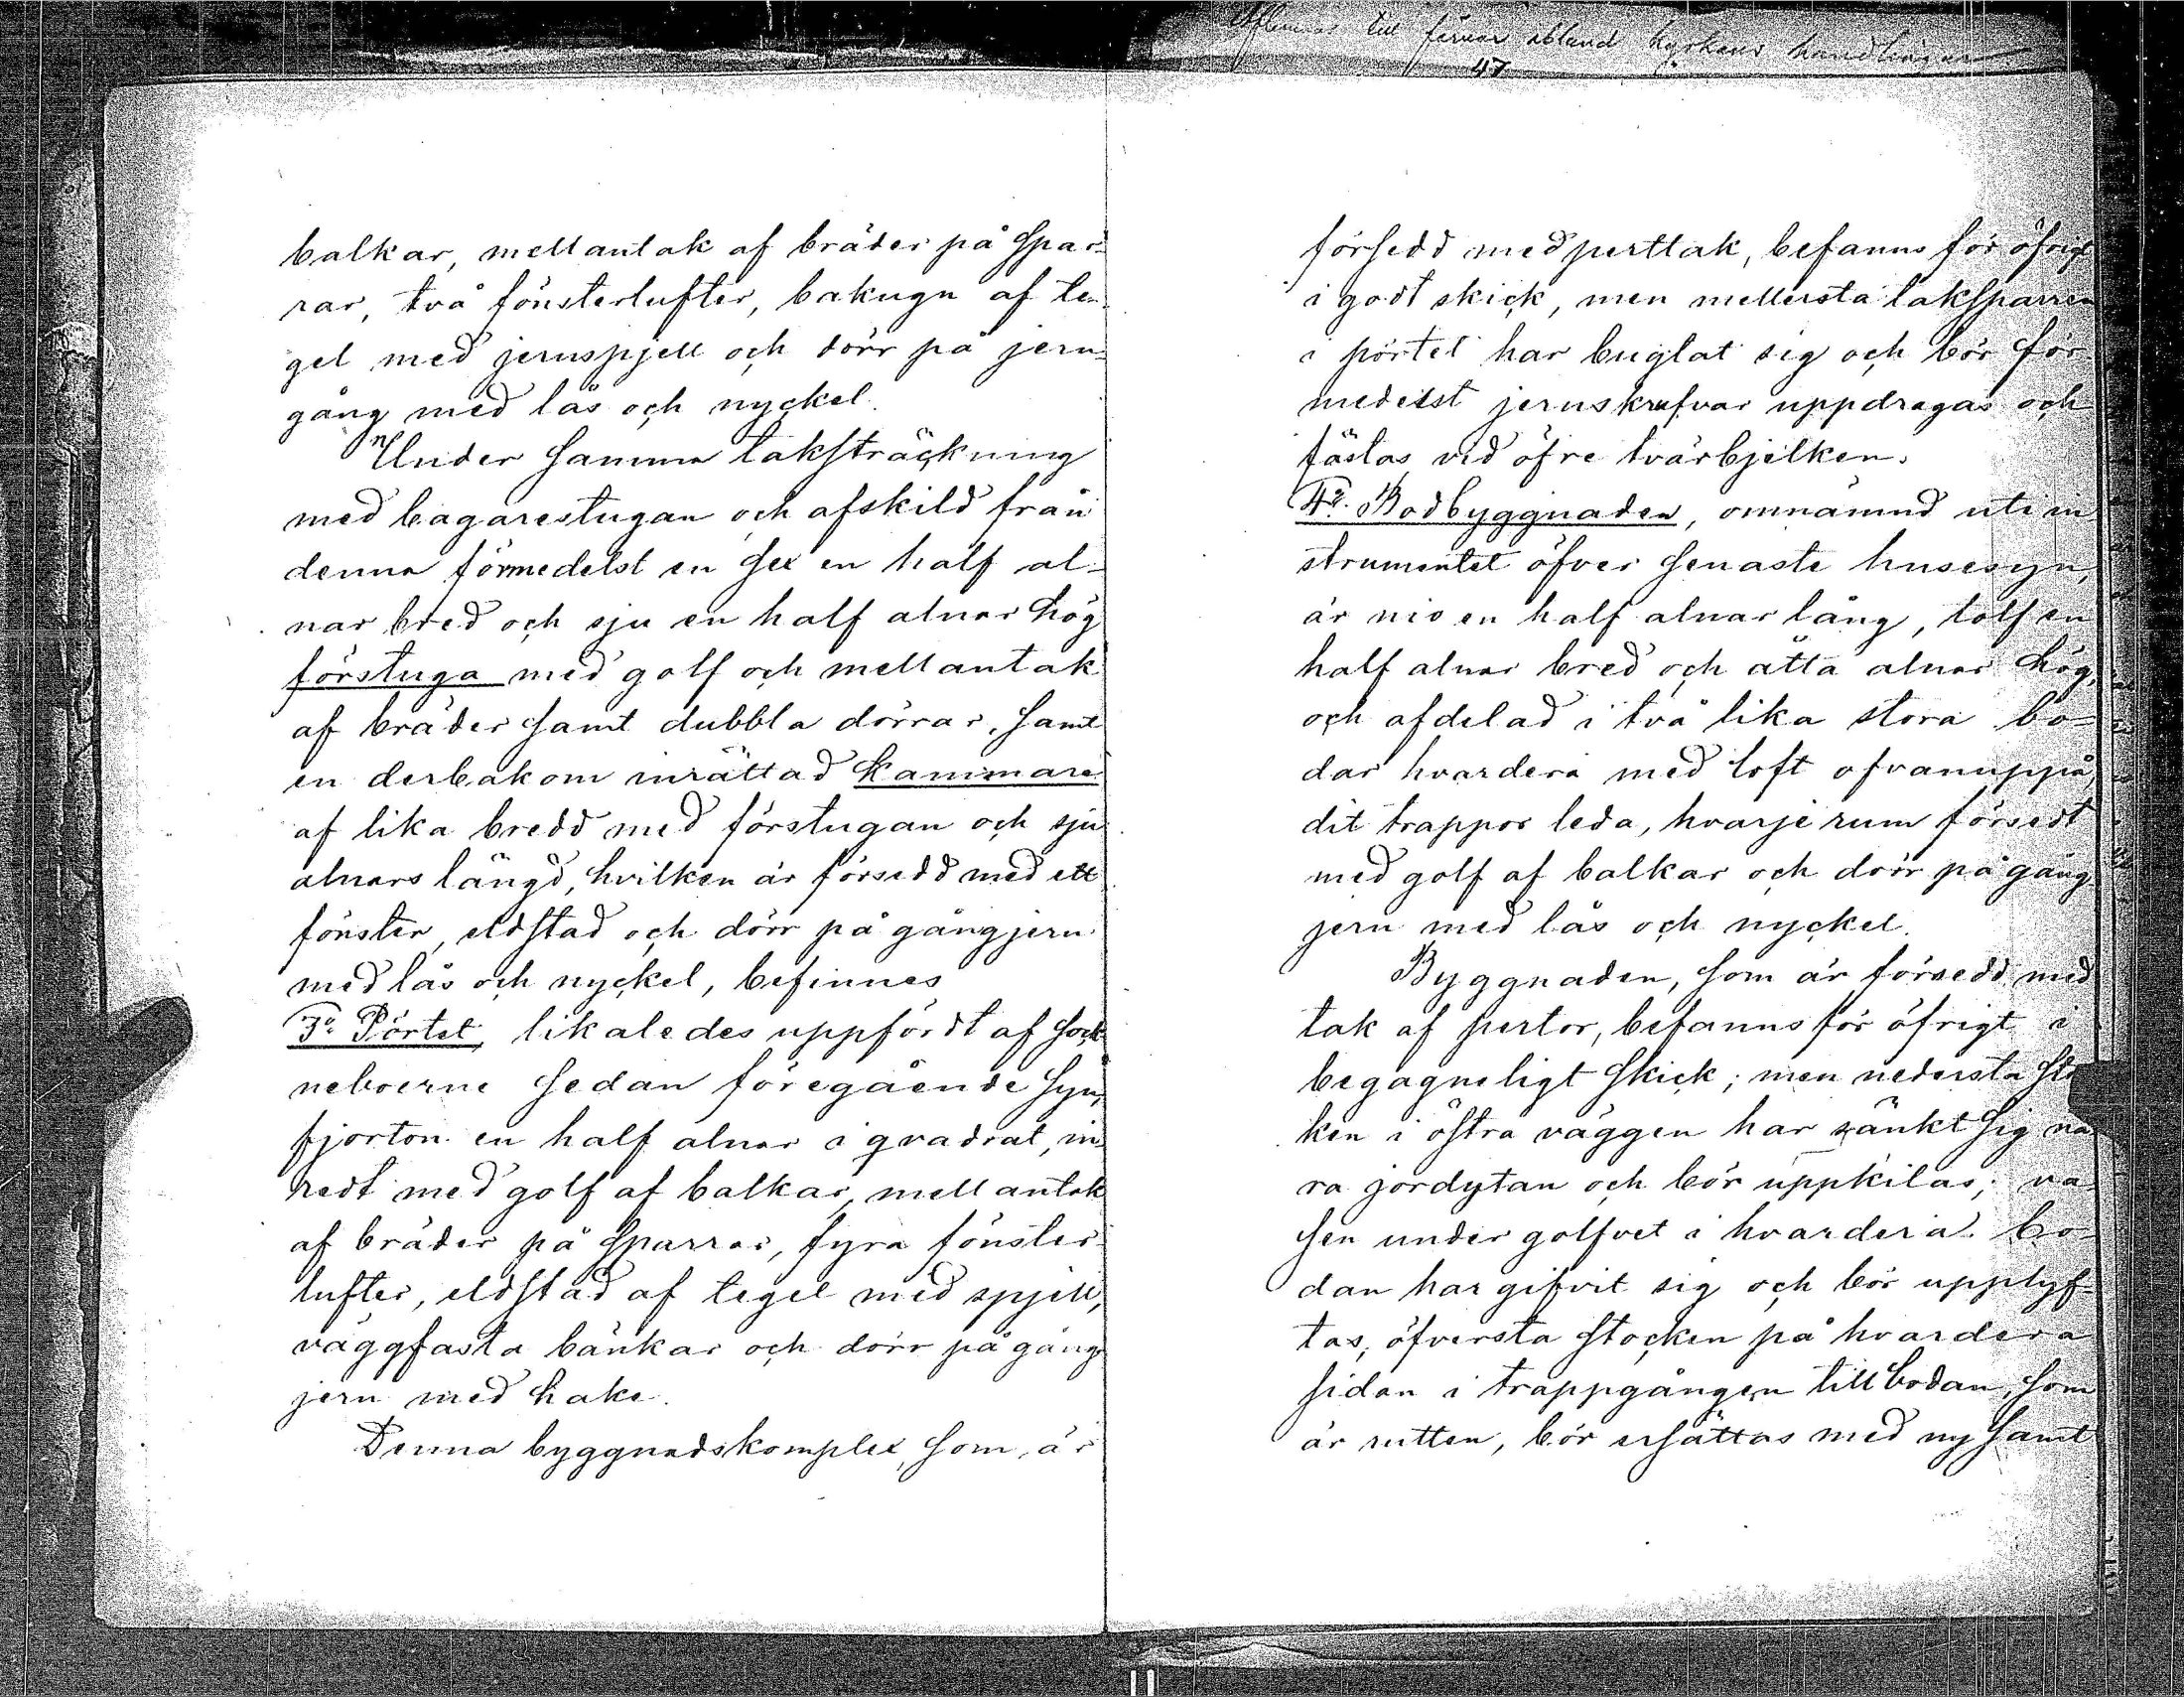 balkar, mellantak af bräder på spar-
rar, två fönsterlufter, bakugn af te-
gel med jernspjell och dörr på jern-
gång med lås och nyckel.
Under samma taksträckning
med bagarestugan och afskild från
denna förmedelst en sex en half al-
nar bred och sju en half alnar hög
förstuga med golf och mellantak
af bräder samt dubbla dörrar, samt
en derbakom inrättad kammare
af lika bredd med förstugan och sju
alnars längd, hvilken är försedd med ett
fönster, eldstad och dörr på gångjern
med lås och nyckel, befinnes
3o Pörtet, likaledes uppfördt af sock-
neboerne sedan föregående syn,
fjorton en half alnar i qvadrat, in-
redt med golf af balkar, mellantak
af bräder på sparrar, fyra fönster-
lufter, eldstad af tegel med spjell,
väggfasta bänkar och dörr på gång-
jern med hake.
Denna byggnadskomplex, som är
till förvar ibland kyrkans handlingar
47
försedd med perttak, befanns för öfrigt
i godt skick, men mellersta taksparren
i pörtet har buglat sig och bör för-
medelst jernskrufvar uppdragas och
fästas vid öfre tvärbjelken.
4o. Bodbyggnaden, omnämnd uti in-
strumentet öfver senaste husesyn,
är nio en half alnar lång, tolf en
half alnar bred och åtta alnar hög,
och afdelad i två lika stora bo-
dar hvardera med loft ofvanuppå,
dit trappor leda, hvarje rum försedt
med golf af balkar och dörr på gång-
jern med lås och nyckel.
Byggnaden, som är försedd med
tak af pertor, befanns för öfrigt i
begagneligt skick; men nedersta sto-
ken i östra väggen har sänkt sig nä-
ra jordytan och bör uppkilas; va-
sen under golfvet i hvardera bo-
dan har gifvit sig och bör upplyf-
tas, öfversta stocken på hvardera
sidan i trappgången till bodan, som
är rutten, bör ersättas med ny samt